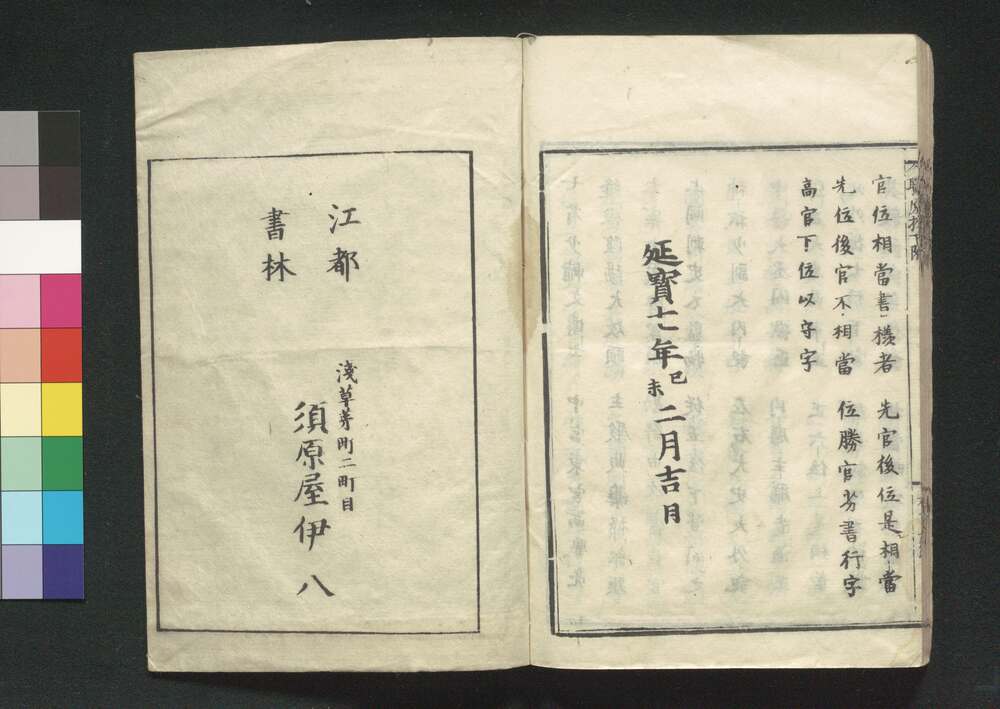 官位相當書様者　先官後位是相當
先位後官不相當　位勝官劣書行字
高官下位以守字
延寳七年己未二月吉日
江都
書林
淺草茅町二町目
須原屋伊八